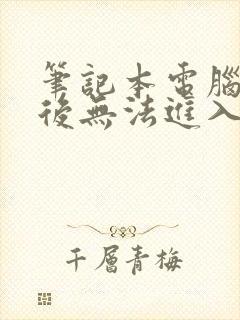 筆記本電腦
後無法進入
千層青梅